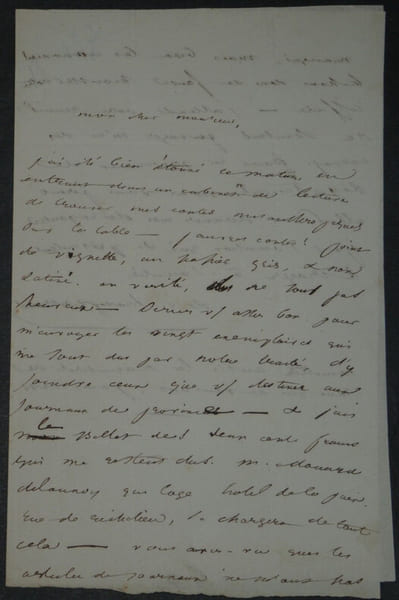 mon cher monsieur,
j'ai été bien étonné ce matin, en
entrant dans un cabinet de lecture
de trouver mes contes
sur la table — pauvres contes! point
de vignette, un papier gris, & non
satiné. en vérité, ils ne sont pas
heureux — Serez v/ assez bon pour
m'envoyer les vingt exemplaires qui
me sont dus par notre traité, d'y
joindre ceux que v/ destinez aux
journaux de province — & puis
le billet de deux cents francs
qui me restent dus. m. édouard
delaunay qui loge hotel de la paix
rue de richelieu, se chargera de tout
cela — vous avez vu que les
articles de journaux ne nous ont pas